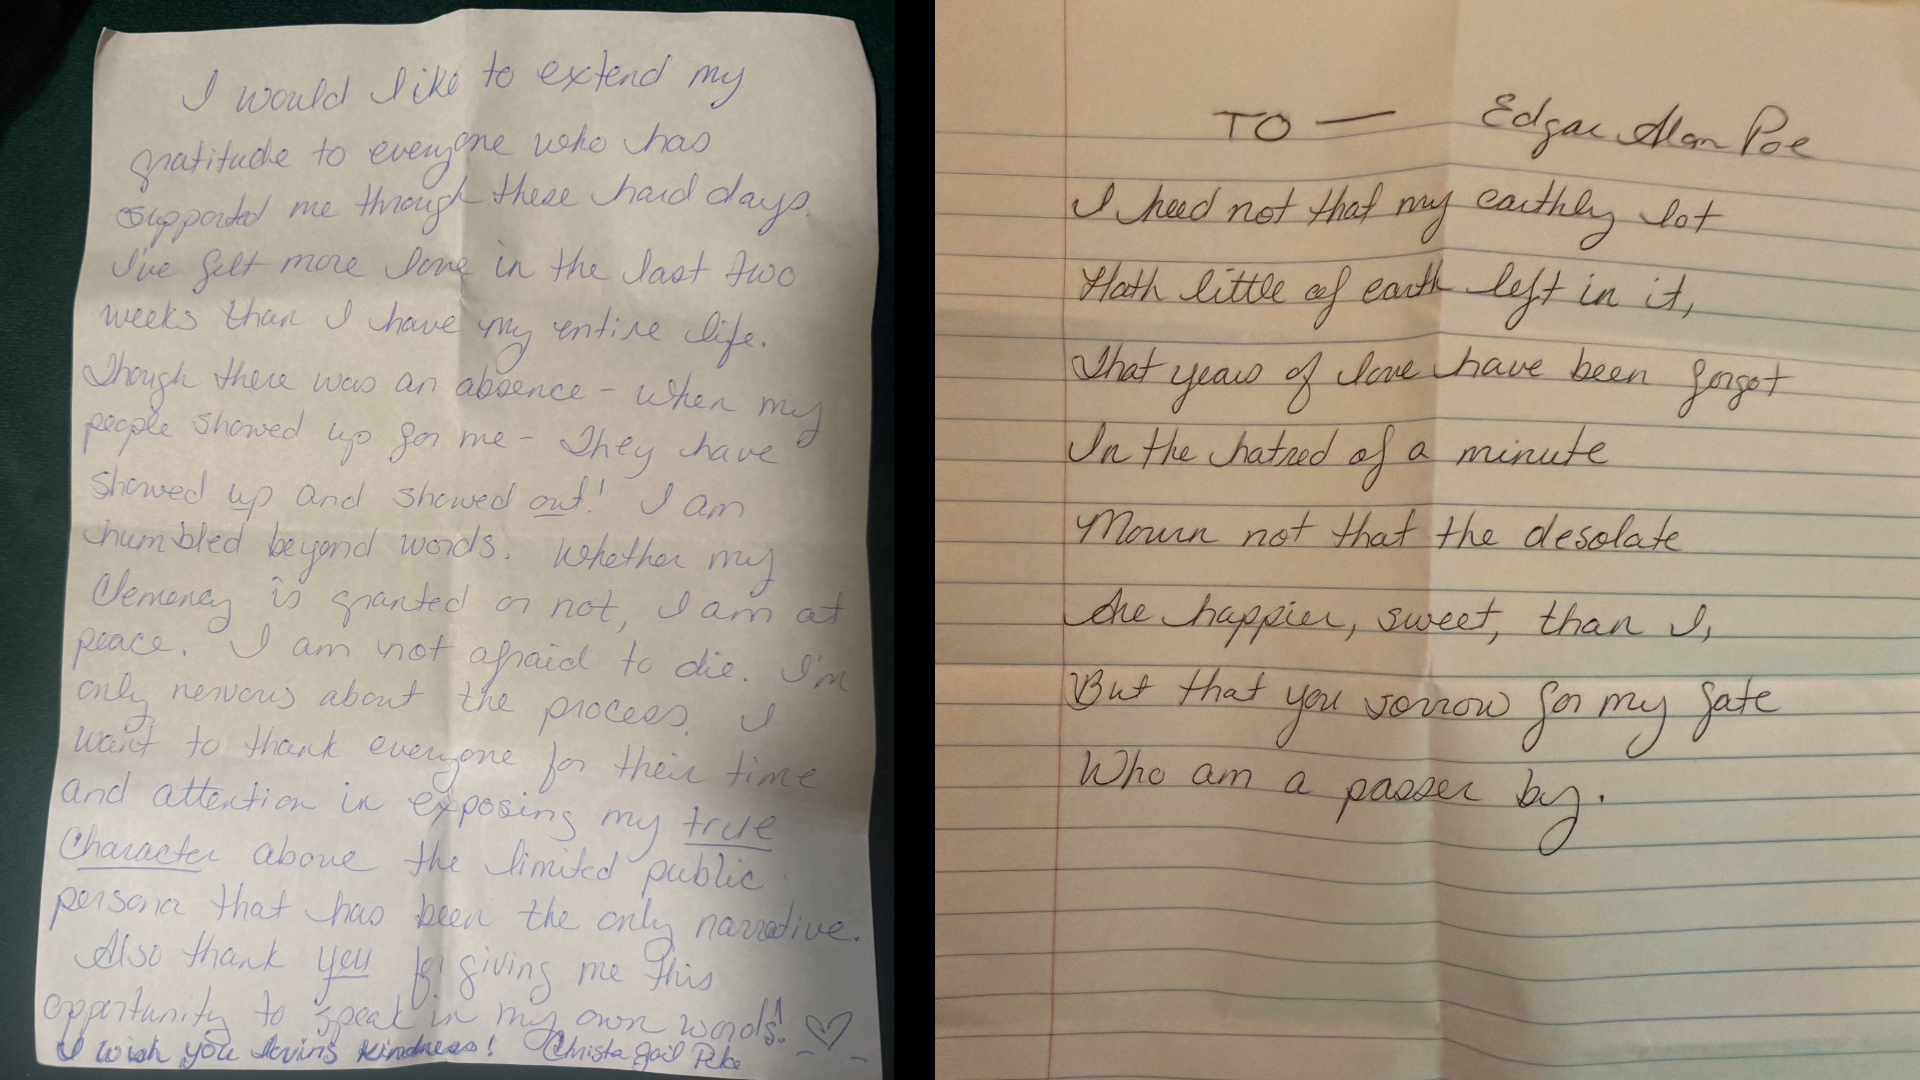 I would like to extend my
gratitude to everyone who has
supported me through these hard days.
I've felt more love in the last two
weeks than I have my entire life.
Though there was an absence - when my
people showed up for me - They have
showed up and showed out! I am
humbled beyond words. Whether my
Clemency is granted or not, I am at
peace. I am not afraid to die. I'm
only nervous about the process. I
want to thank everyone for their time
and attention in exposing my true
Character above the limited public
persona that has been the only narrative.
Also thank you for giving me this
opportunity to speak in my own words!
I wish you loving kindness! Christa Gail Pike
TO — Edgar Alan Poe
I heed not that my earthly lot
Hath little of earth left in it,
That years of love have been forgot
In the hatred of a minute
Mourn not that the desolate
Are happier, sweet, than I,
But that you sorrow for my fate
Who am a passer by.